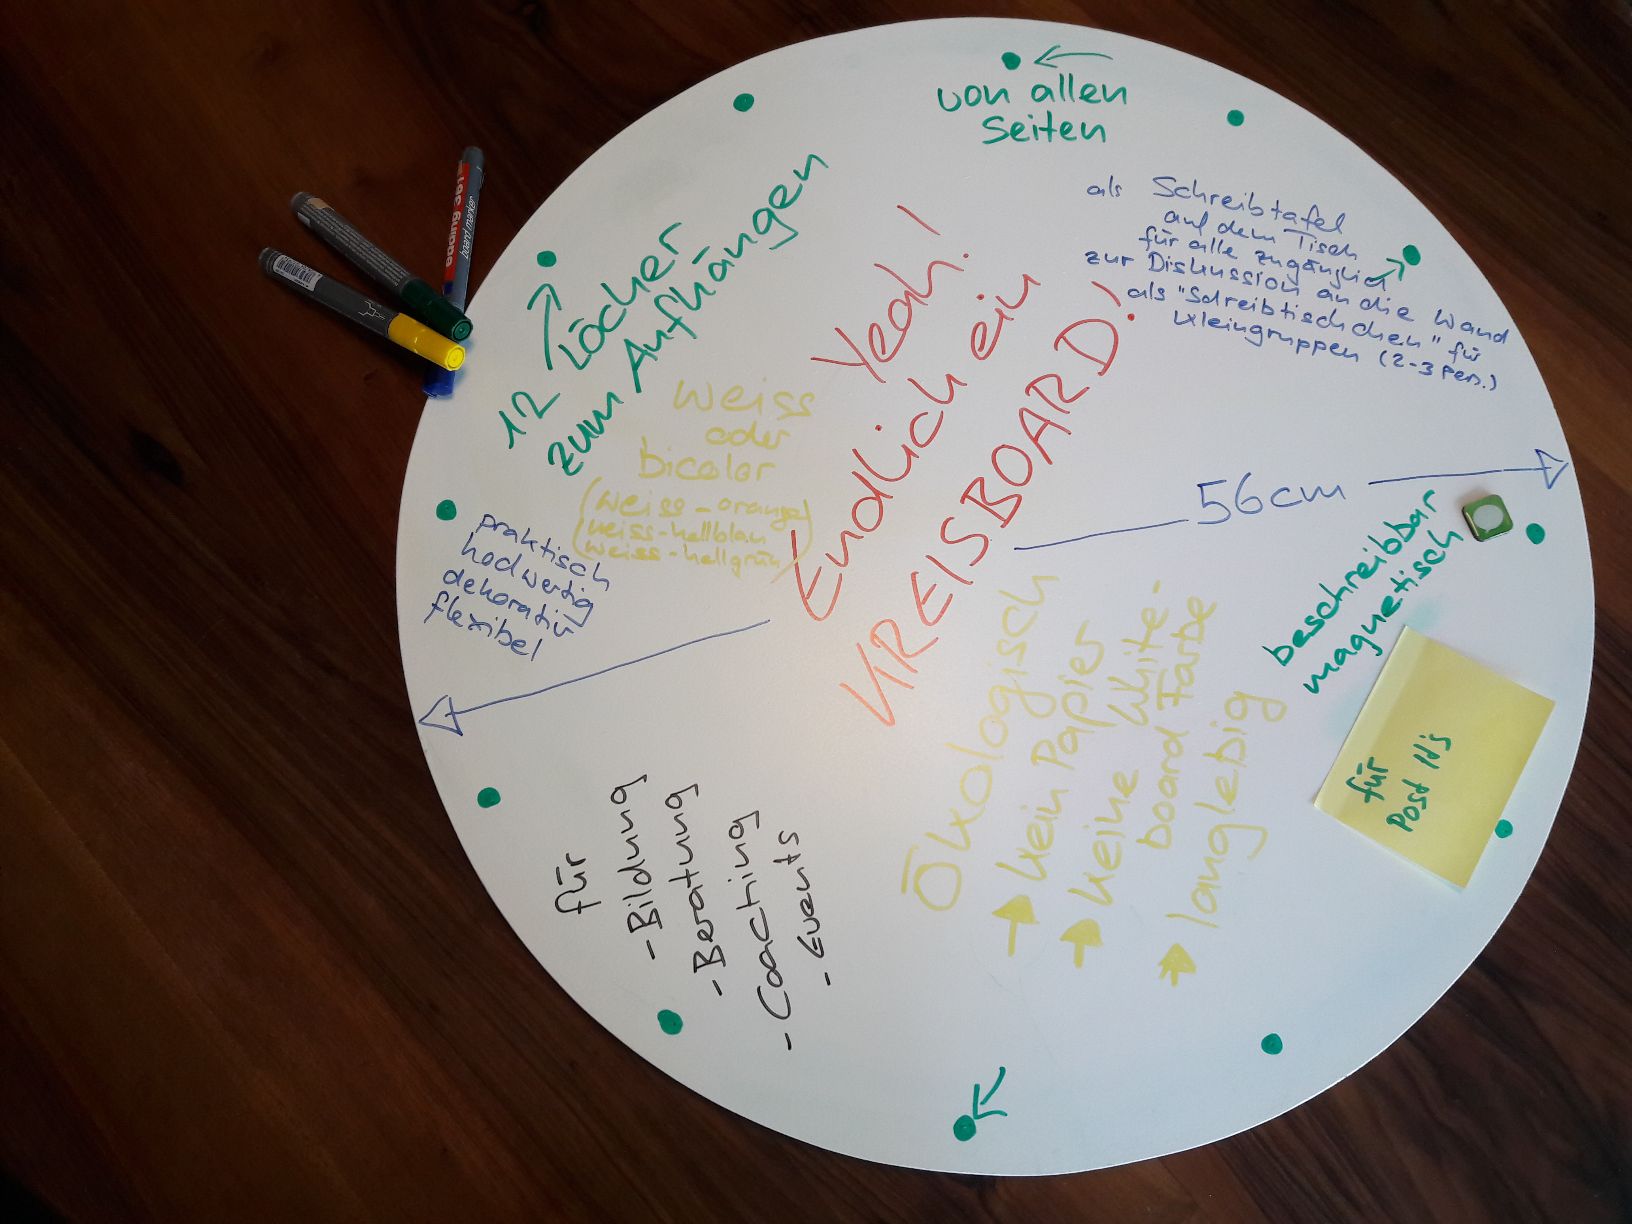 von allen
Seiten
12 Löcher
zum Aufhängen
als Schreibtafel
auf dem Tisch
für alle zugänglich
zur Diskussion an die Wand
als "Schreibtischchen" für
Kleingruppen (2-3 Pers.)
Yeah!
Endlich ein
KREISBOARD!
weiss
oder
bicolor
(weiss-orange
weiss-hellblau
weiss-hellgrün)
praktisch
hochwertig
dekorativ
flexibel
56cm
beschreibbar
magnetisch
für
Post It's
Ökologisch
→ kein Papier
→ keine White-
board Farbe
→ langlebig
für
- Bildung
- Beratung
- Coaching
- Events
edding 361
board marker